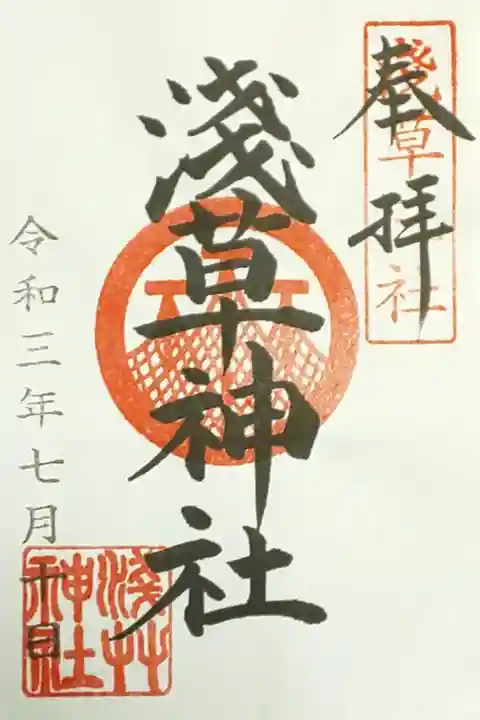 奉拝
淺草神社
淺草神社
令和三年七月十日
淺草神社